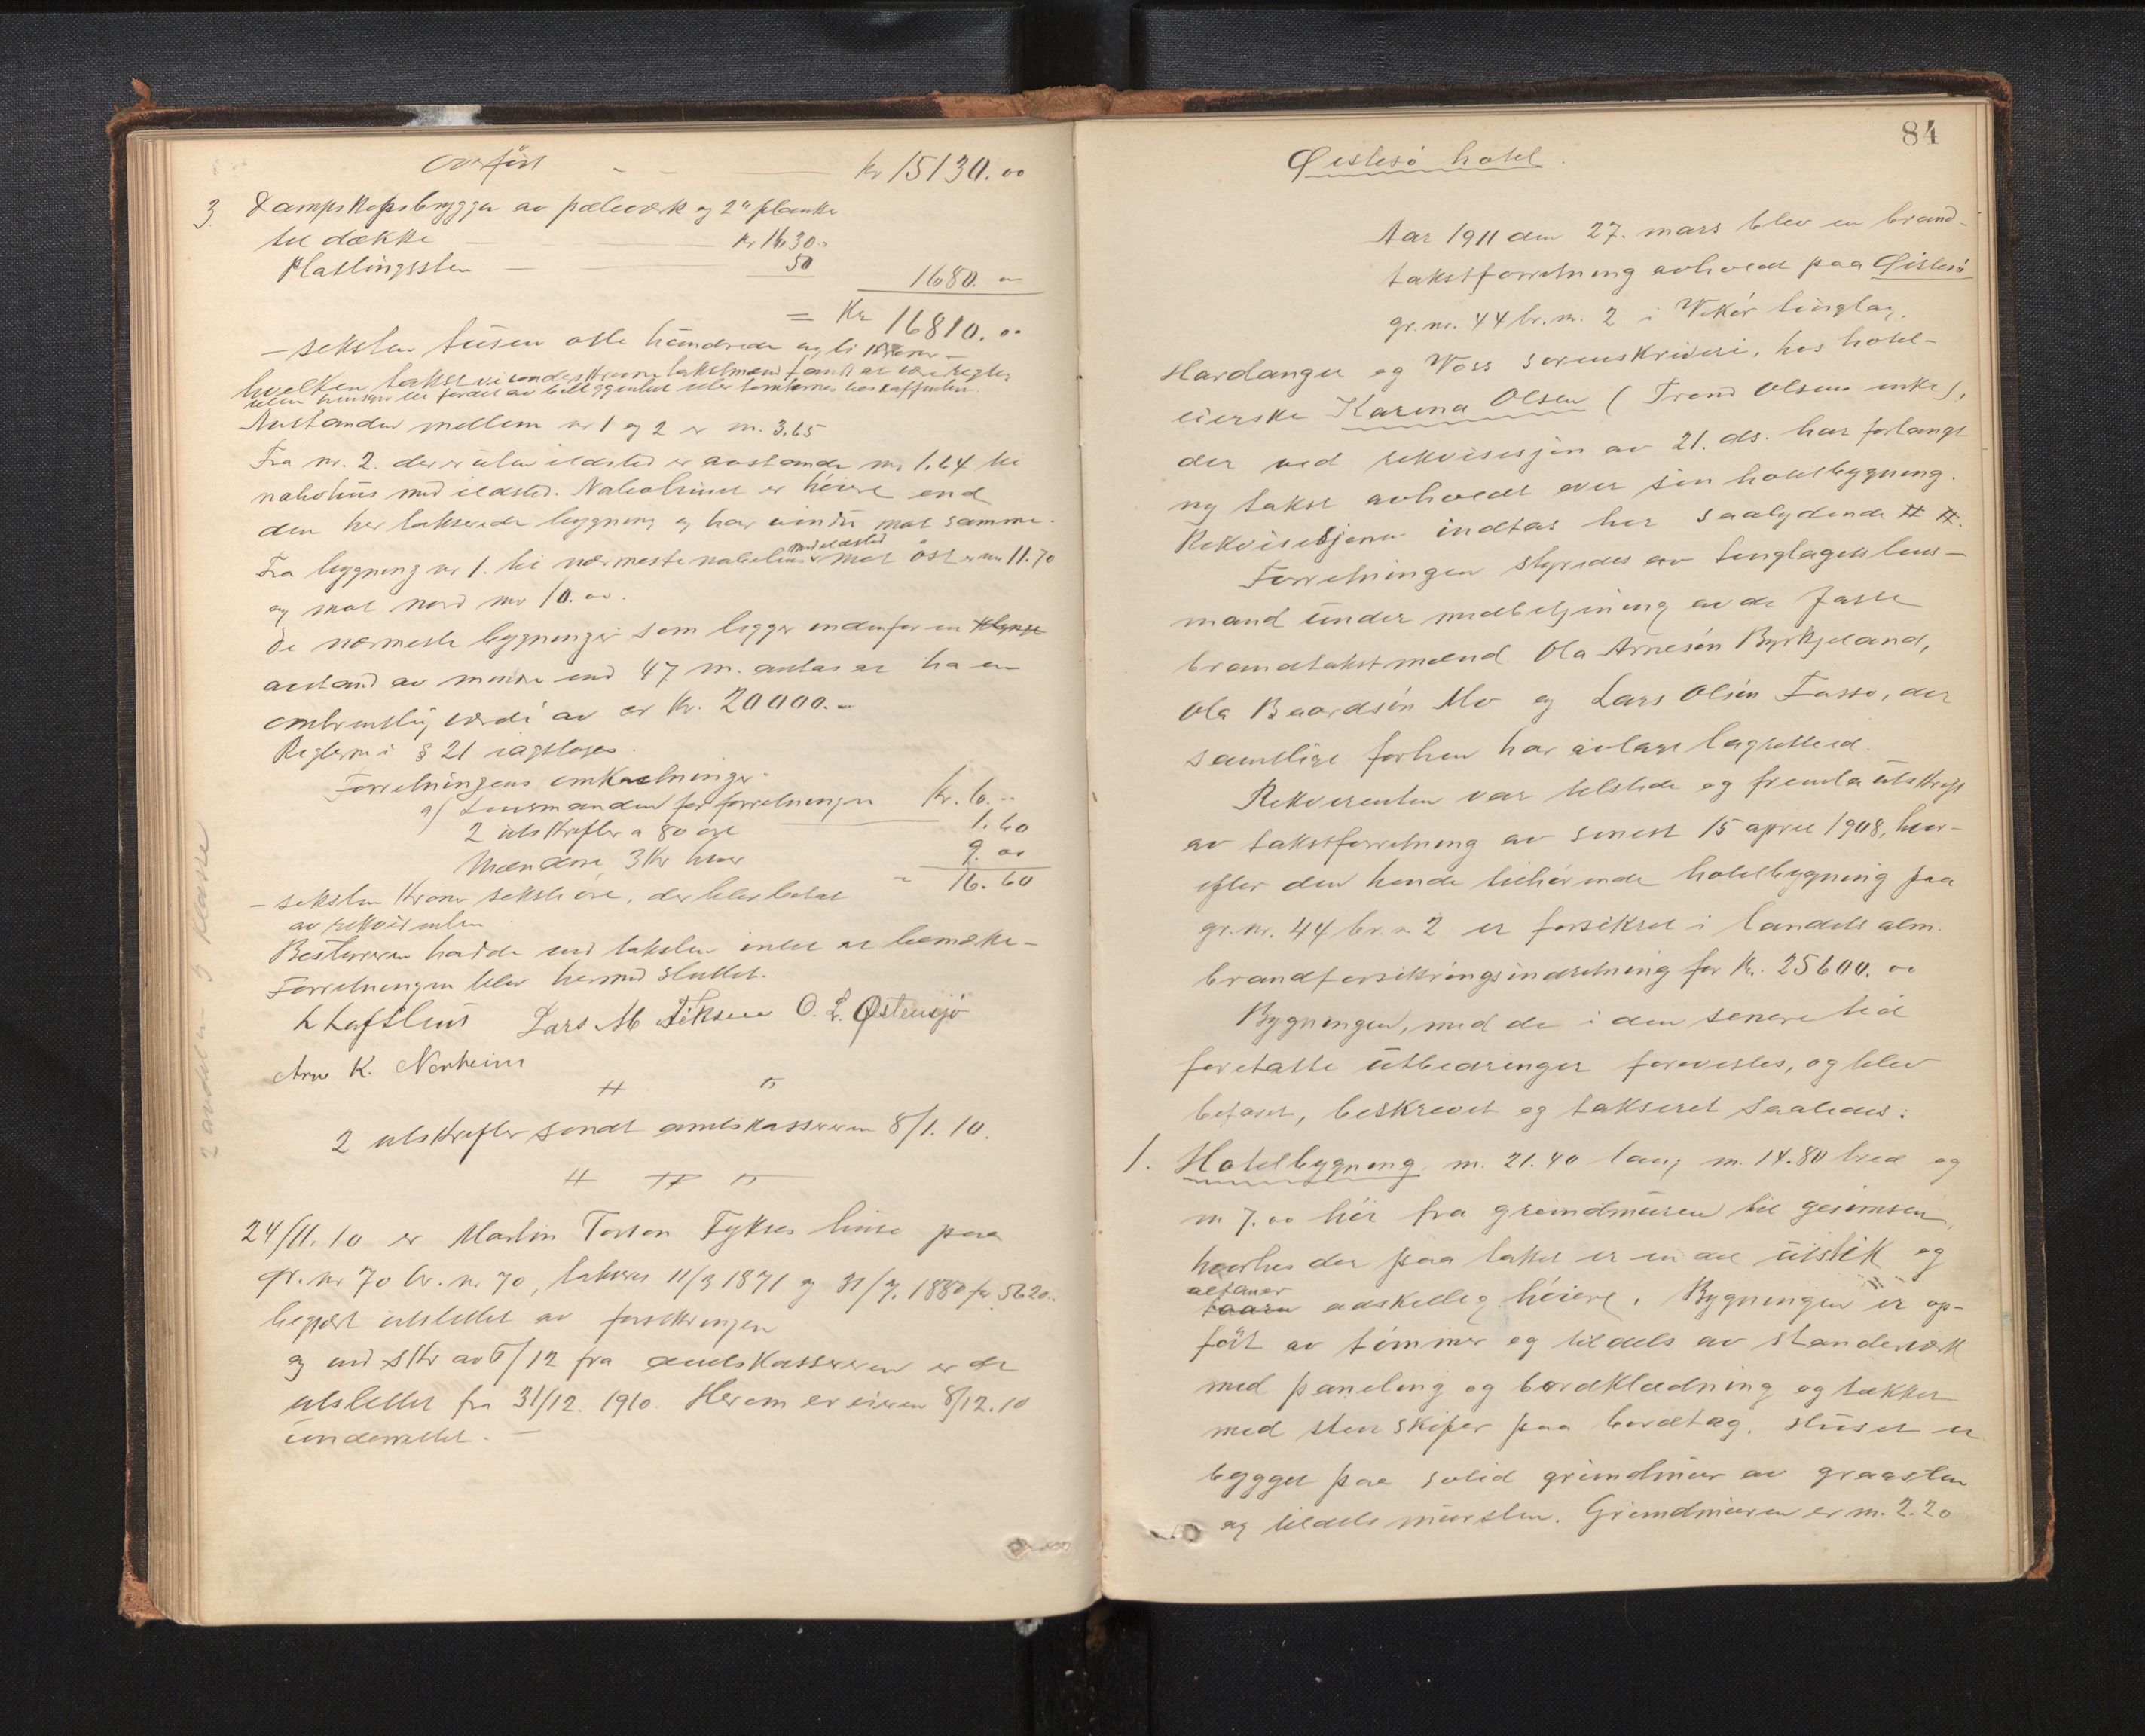 Overført — Kr 15130.00
3 Dampskibsbrygge av pæleværk og 2" planke
til dække — Kr 1630.-
Plattingssten — 50
1680. -
= Kr 16810.00
- seksten tusen otte hundrede og ti kroner -
hvilken takst vi underskrevne takstmænd fandt at være rigtig
uten hensyn til fordel av beliggenhet eller tomternes beskaffenhet.
Avstanden mellem nr 1 og 2 er m. 3.65
Fra nr. 2. der er uten ildsted er avstanden m. 1.64 til
nabohus med ildsted. Nabohuset er høiere end
den her takserede bygning og har vindu mot samme.
Fra bygning nr 1. til nærmeste nabohus med ildsted mot øst er m 11.70
og mot nord m 10.00.
De nærmeste bygninger som ligger indenfor en klynge
avstand av mindre end 47 m. antas at ha en
ombrentlig værdi av Kr. 20000.-
Reglerne i § 21 iagttages.
Forretningens omkostninger:
a) Lensmanden for forretningen Kr. 6.-
2 utskrifter a 80 øre — 1.60
Mændene 3 Kr hver 9.00
- 16.60
- seksten kroner seksti øre, der blev betalt
av rekvirenten
Bestyreren hadde ved taksten intet at bemerke -
Forretningen blev hermed sluttet.
L Lofthus Lars M Fiksen O. L. Østensjø
Arne K. Norheim
2 utskrifter sendt amtskassereren 8/1. 10.
24/11. 10 er Martin Torson Fykses huse paa
gr. nr 70 br. nr 70, takseret 11/3 1871 og 31/7. 1880 for 5620.-
begjært utslettet av forsikringen
og ved skr av 6/12 fra amtskassereren er de
utslettet fra 31/12. 1910. Herom er eieren 8/12. 10
underrettet. -
2 andeler i 3 klasse
84
Øistesø hotel.
Aar 1911 den 27. mars blev en brand-
takstforretning avholdt paa Øistesø
gr. nr. 44 br. nr. 2 i Vikør tinglag,
Hardanger og Voss sorenskriveri, hos hotel-
eierske Karina Olsen (Trond Olsens enke),
der ved rekvisisjon av 21. ds. har forlangt
ny takst avholdt over sin hotelbygning.
Rekvisisjonen indtas her saalydende # #.
Forretningen styredes av tinglagets lens-
mand under medbetjening av de faste
brandtakstmænd Ola Arnesøn Byrkjeland,
Ola Baardsøn Mo og Lars Olsøn Tasso, der
samtlige forhen har avlagt lagretteed.
Rekvirenten var tilstede og fremla utskrift
av takstforretning av senest 15 april 1908, hvor-
efter den hende tilhørende hotelbygning paa
gr. nr. 44 br. nr 2 er forsikret i landets alm.
brandforsikringsindretning for Kr. 25600.00
Bygningen, med de i den senere tid
foretatte utbedringer forevistes, og blev
befaret, beskrevet og takseret saaledes:
1. Hotelbygning m. 21.40 lang m. 14.80 bred og
m 7.00 høi fra grundmuren til gesimsen,
hvorhos der paa taket er en del utstik og
altaner taarn adskillig høiere. Bygningen er op-
ført av tømmer og tildels av standerverk
med paneling og bordklædning og tækket
med sten skifer paa bordtag. Huset er
bygget paa solid grundmur av graasten
og tildels mursten. Grundmuren er m. 2.20